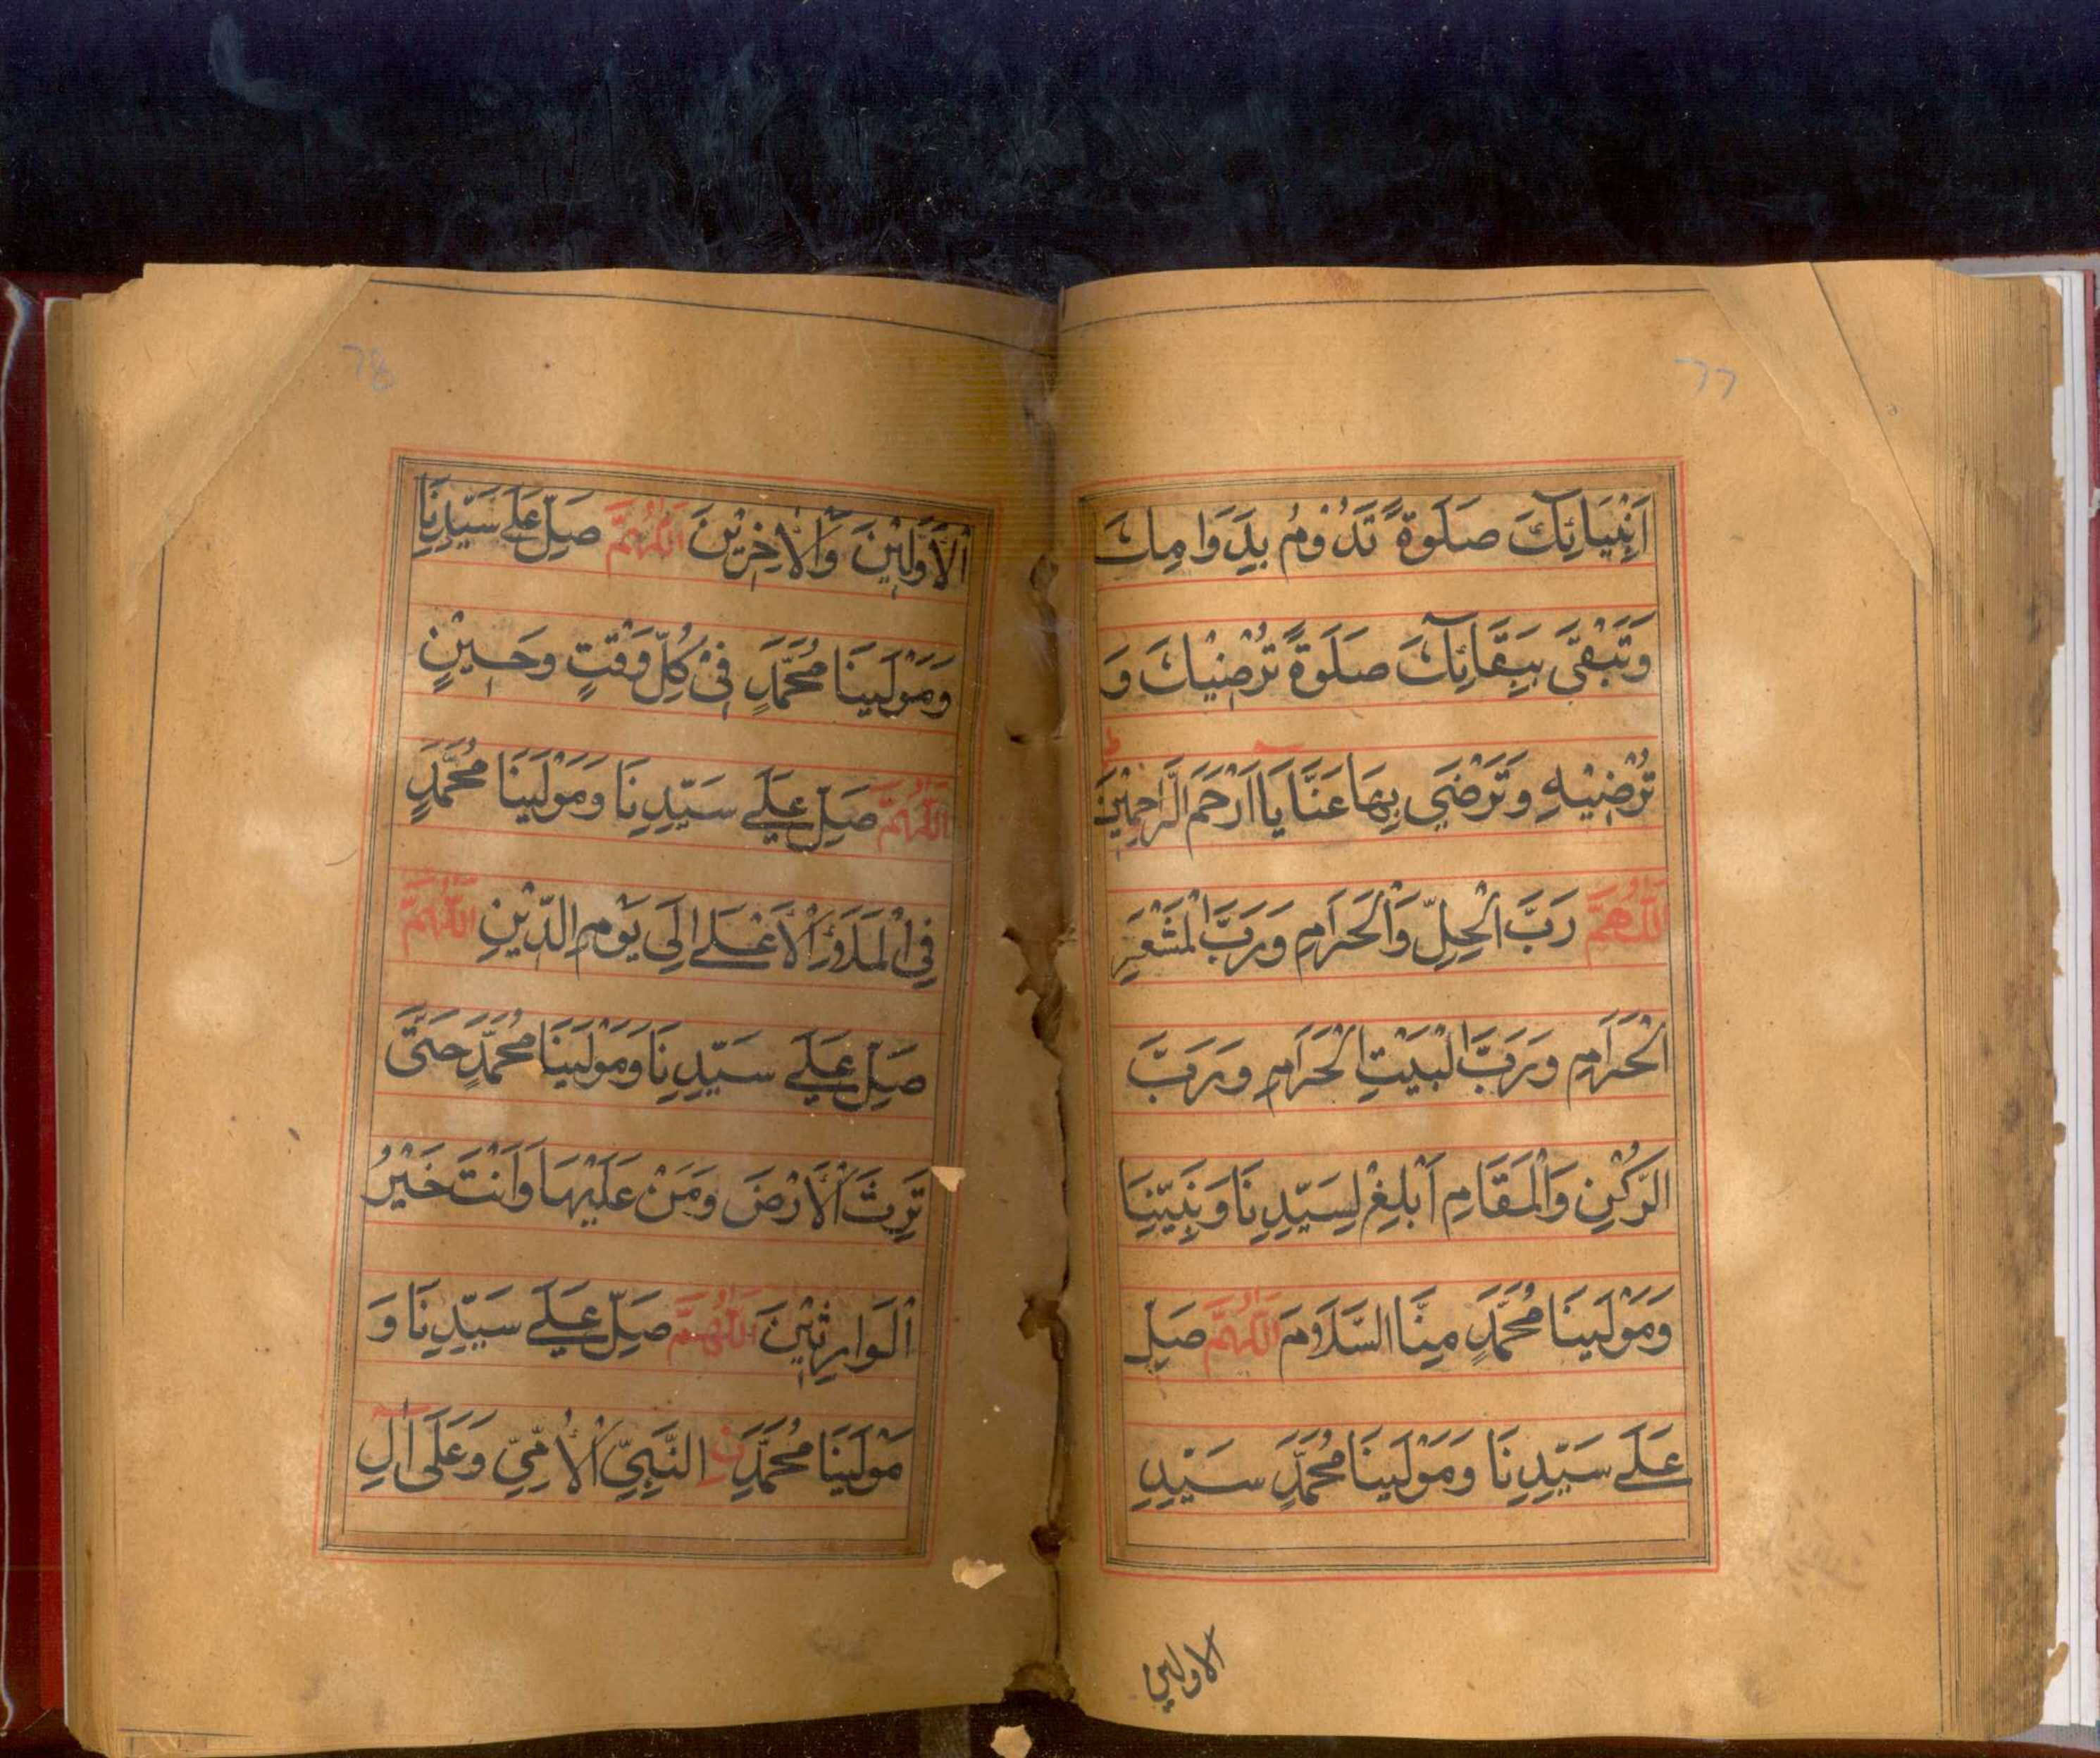 77
اَنْبِيَائِكَ صَلَوةً تَدُوْمُ بِدَوَامِكَ
وَتَبْقَى بِبَقَائِكَ صَلَوةً تُرْضِيْكَ وَ
تُرْضِيْهِ وَتَرْضَى بِهَا عَنَّا يَا اَرْحَمَ الرَّاحِمِيْنَ
اَللّٰهُمَّ رَبَّ الْحِلِّ وَالْحَرَامِ وَرَبَّ الْمَشْعَرِ
الْحَرَامِ وَرَبَّ الْبَيْتِ الْحَرَامِ وَرَبَّ
الرُّكْنِ وَالْمَقَامِ اَبْلِغْ لِسَيِّدِنَا وَنَبِيِّنَا
وَمَوْلَيٰنَا مُحَمَّدٍ مِنَّا السَّلَامَ اَللّٰهُمَّ صَلِّ
عَلٰے سَيِّدِنَا وَمَوْلَيٰنَا مُحَمَّدٍ سَيِّدِ
الاولين
78
الْاَوَّلِيْنَ وَالْاٰخِرِيْنَ اَللّٰهُمَّ صَلِّ عَلٰے سَيِّدِنَا
وَمَوْلَيٰنَا مُحَمَّدٍ فِيْ كُلِّ وَقْتٍ وَحِيْنٍ
اَللّٰهُمَّ صَلِّ عَلٰے سَيِّدِنَا وَمَوْلَيٰنَا مُحَمَّدٍ
فِي الْمَلَاءِ الْاَعْلٰے اِلٰى يَوْمِ الدِّيْنِ اَللّٰهُمَّ
صَلِّ عَلٰے سَيِّدِنَا وَمَوْلَيٰنَا مُحَمَّدٍ حَتّٰى
تَرِثَ الْاَرْضَ وَمَنْ عَلَيْهَا وَاَنْتَ خَيْرُ
الْوَارِثِيْنَ اَللّٰهُمَّ صَلِّ عَلٰے سَيِّدِنَا وَ
مَوْلَيٰنَا مُحَمَّدِ نِ النَّبِيِّ الْاُمِّيِّ وَعَلٰى اٰلِ